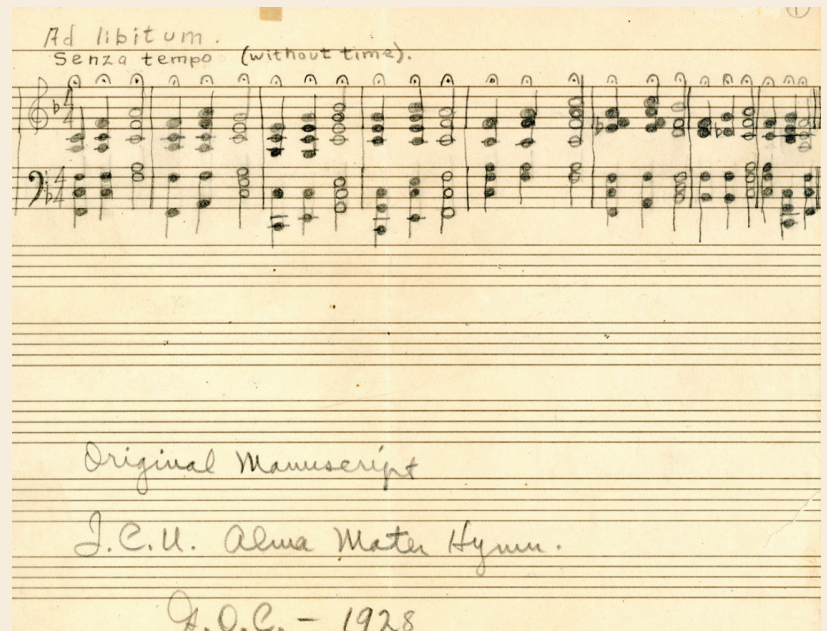 1
Ad libitum.
Senza tempo (without time).
Original Manuscript
J.C.U. Alma Mater Hymn.
G.O.C. - 1928